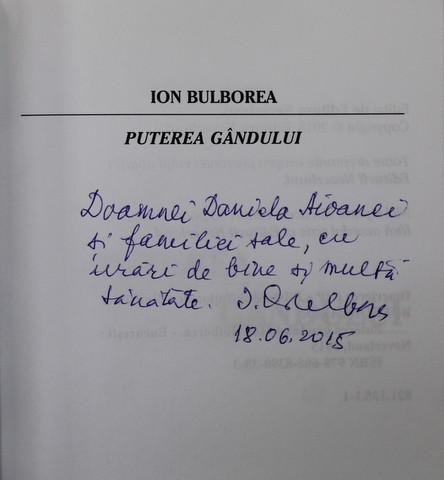 ION BULBOREA
PUTEREA GÂNDULUI
Doamnei Daniela Aioanei
și familiei sale, cu
urări de bine și multă
sănătate. I. Bulborea
18.06.2015